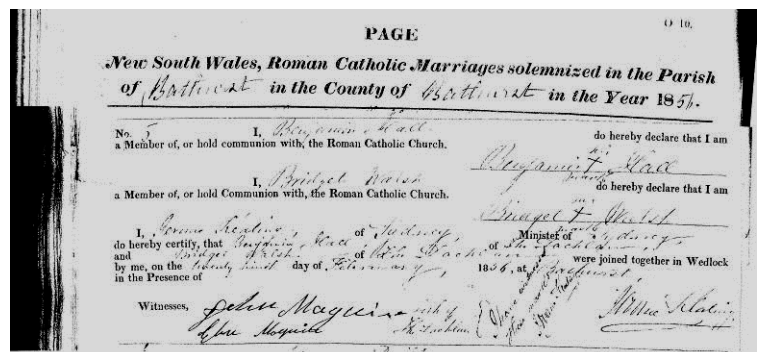 O 10.
PAGE
New South Wales, Roman Catholic Marriages solemnized in the Parish
of Bathurst in the County of Bathurst in the Year 1856.
No. 5 I, Benjamin Hall do hereby declare that I am
a Member of, or hold communion with, the Roman Catholic Church.
Benjamin X Hall
mark
I, Bridget Walsh do hereby declare that I am
a Member of, or hold Communion with, the Roman Catholic Church.
Bridget X Walsh
mark
I, of Sydney, Minister of Sydney
do hereby certify, that Benjamin Hall of the Lachlan
and Bridget Walsh of the Lachlan were joined together in Wedlock
by me, on the twenty day of February, 1856, at Bathurst
in the Presence of
Witnesses, John Maguire both of
Maguire the Lachlan